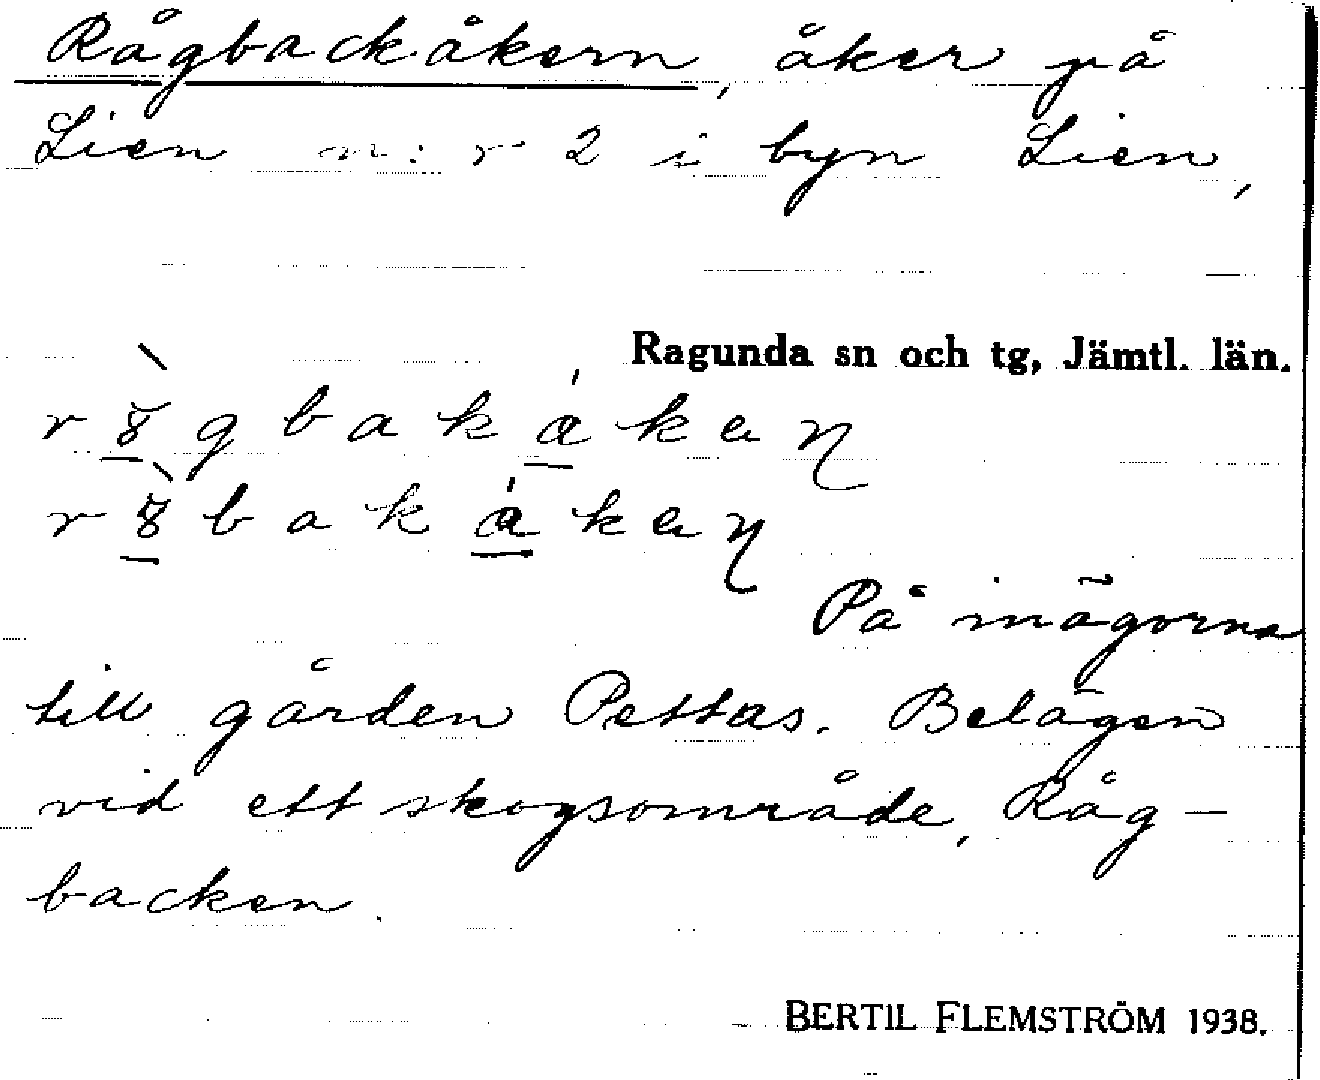 Rågbackåkern, åker på
Lien n:r 2 i byn Lien,
Ragunda sn och tg, Jämtl. län.
På inägorna
till gården Pettas. Belägen
vid ett skogsområde, Råg-
backen.
BERTIL FLEMSTRÖM 1938.